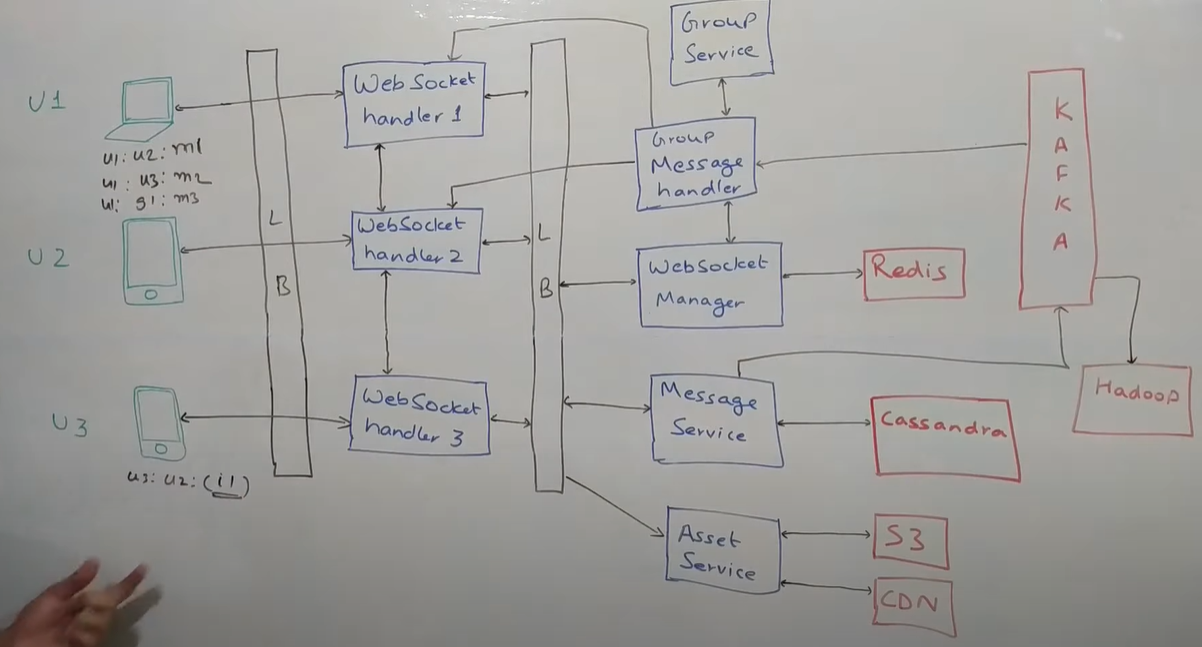 U1
u1: u2: m1
u1: u3: m2
u1: g1: m3
U2
U3
u3: u2: (i1)
L
B
WebSocket
handler 1
WebSocket
handler 2
WebSocket
handler 3
L
B
Group
Service
Group
Message
handler
WebSocket
Manager
Redis
Message
Service
Cassandra
Asset
Service
S3
CDN
K
A
F
K
A
Hadoop